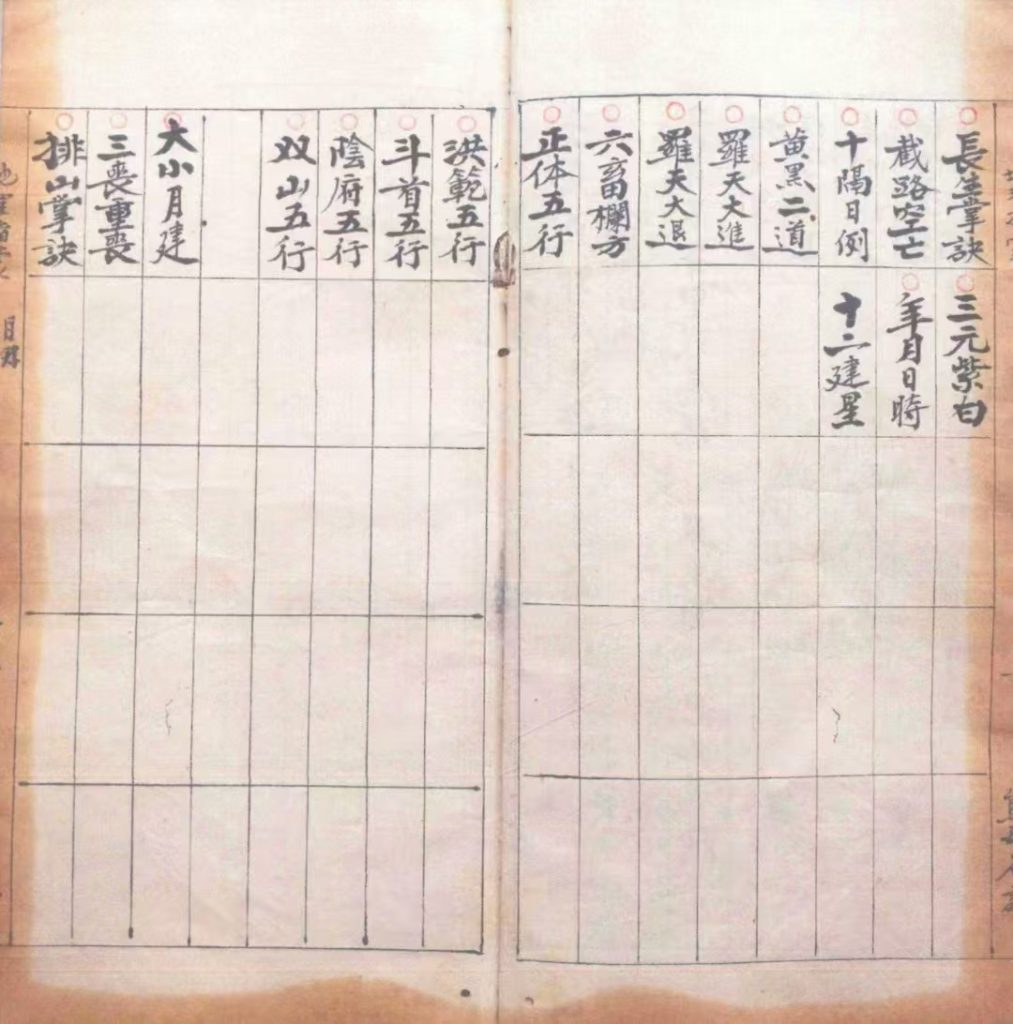 長生掌訣
三元紫白
截路空亡
年月日時
十隔日例
十二建星
黃黑二道
羅天大進
羅天大退
六畜欄方
正体五行
洪範五行
斗首五行
陰府五行
双山五行
大小月建
三喪重喪
排山掌訣
目録